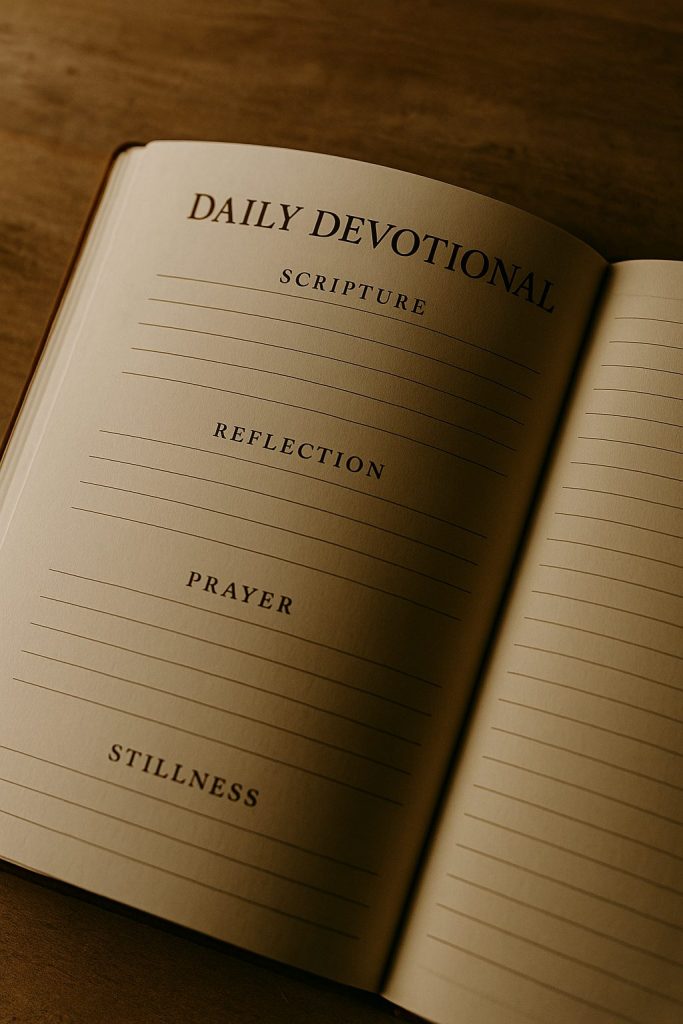 DAILY DEVOTIONAL
SCRIPTURE
REFLECTION
PRAYER
STILLNESS